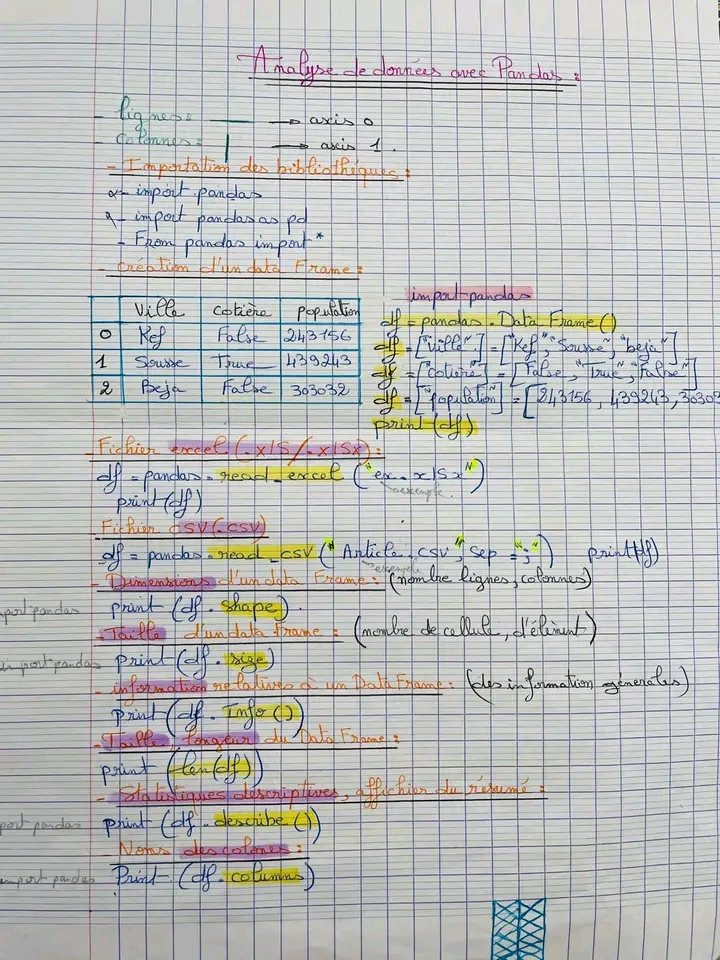 Analyse de données avec Pandas :
- lignes : → axis 0
- colonnes : → axis 1.
- Importation des bibliothéques :
- import pandas
- import pandas as pd
- From pandas import *
- création d'un data Frame :
Ville cotière population
0 Kef False 243156
1 Sousse True 439243
2 Beja False 303032
import pandas
df = pandas.DataFrame()
df = ["Ville"] = ["Kef", "Sousse", "beja"]
df = ["cotière"] = [False, "True", "False"]
df = ["population"] = [243156, 439243, 3030
print(df)
- Fichier excel (.xlS/.xlSx) :
df = pandas.read_excel ("ex..xlSx")
exemple.
print(df)
- Fichier CSV (.csv)
df = pandas.read_csv ("Article.csv", Sep = ";") print(df)
exemple
- Dimensions d'un data Frame : (nombre lignes, colonnes)
port pandas
print (df.shape).
- Taille d'un data Frame : (nombre de cellule, d'élément)
import pandas
print (df.size)
- information relatives à un DataFrame : (des information génerales)
print (df.Info())
- Taille, longeur du Data Frame :
print (len(df))
- Statistiques descriptives, affichier du résumé :
port pandas
print (df.describe())
- Noms des colones :
import pandas
Print (df.columns)